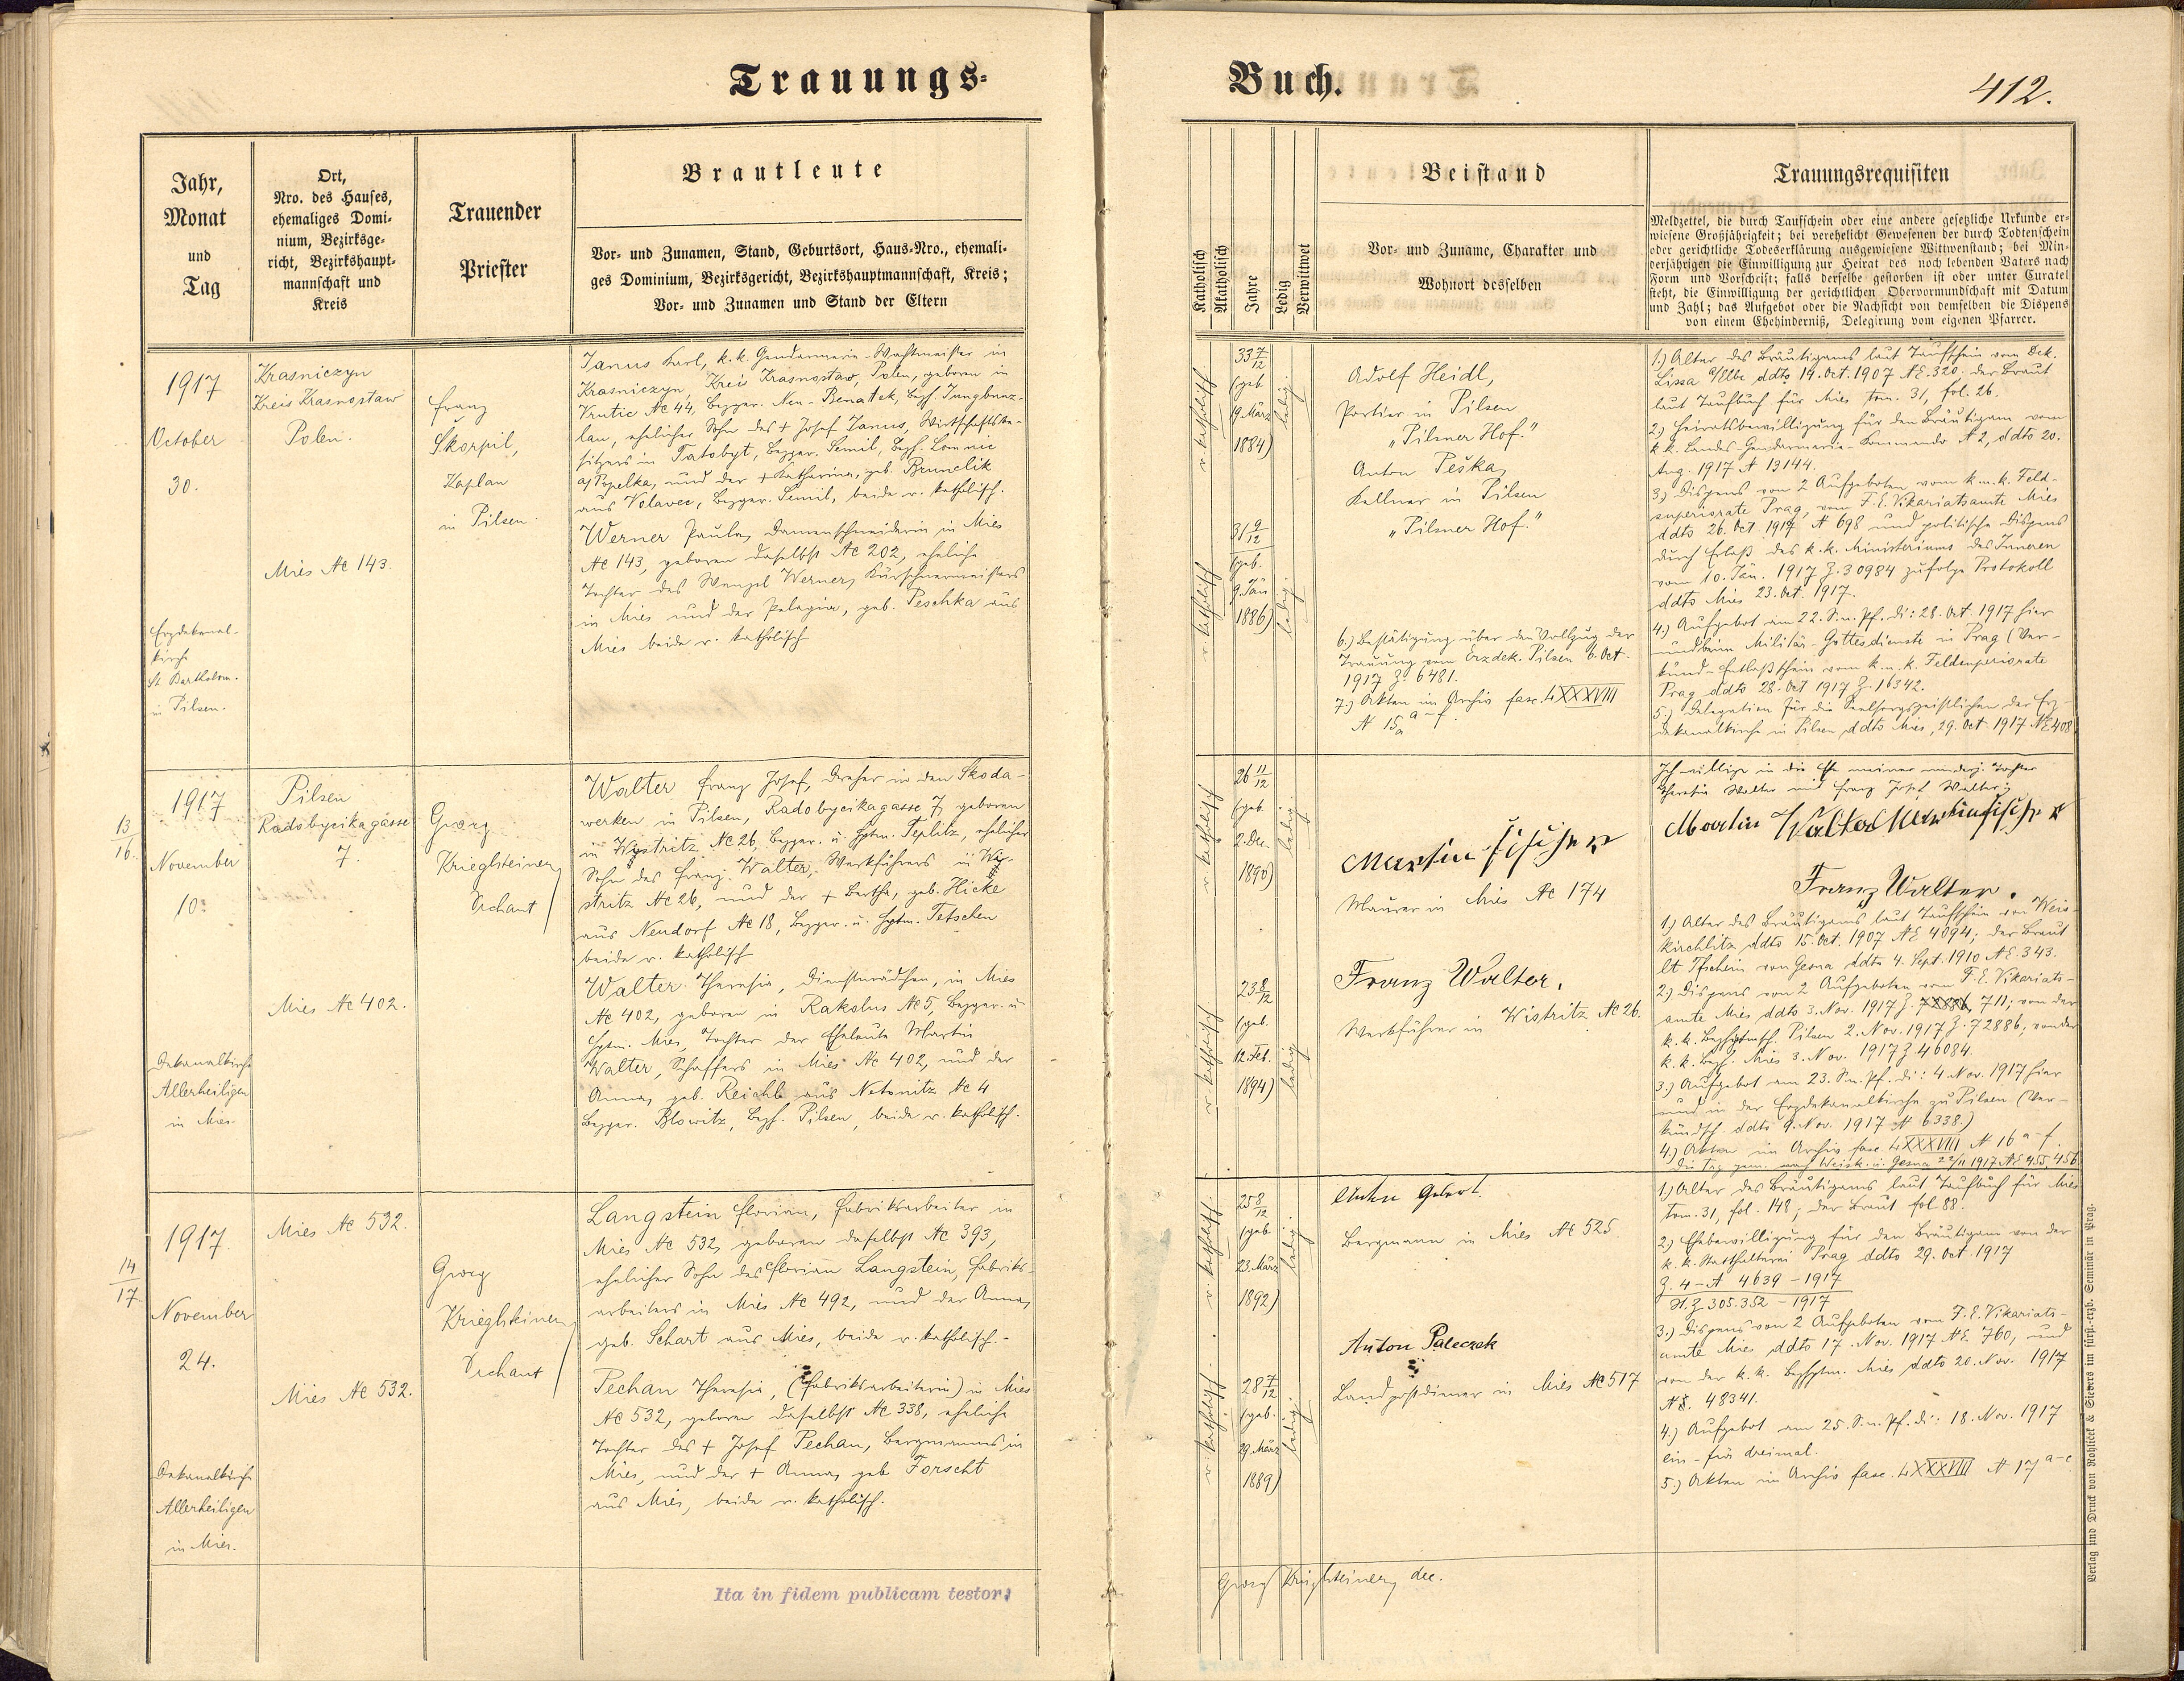 Trauungs-
Buch.
412.
Jahr,
Monat
und
Tag
Ort,
Nro. des Hauses,
ehemaliges Domi-
nium, Bezirksge-
richt, Bezirkshaupt-
mannschaft und
Kreis
Trauender
Priester
Brautleute
Vor- und Zunamen, Stand, Geburtsort, Haus-Nro., ehemali-
ges Dominium, Bezirksgericht, Bezirkshauptmannschaft, Kreis;
Vor- und Zunamen und Stand der Eltern
Katholisch
Akatholisch
Jahre
Ledig
Verwittwet
Beistand
Vor- und Zuname, Charakter und
Wohnort desselben
Trauungsrequisiten
Meldzettel, die durch Taufschein oder eine andere gesetzliche Urkunde er-
wiesene Großjährigkeit; bei verehelicht Gewesenen der durch Todtenschein
oder gerichtliche Todeserklärung ausgewiesene Wittwenstand; bei Min-
derjährigen die Einwilligung zur Heirat des noch lebenden Vaters nach
Form und Vorschrift; falls derselbe gestorben ist oder unter Curatel
steht, die Einwilligung der gerichtlichen Obervormundschaft mit Datum
und Zahl; das Aufgebot oder die Nachsicht von demselben die Dispens
von einem Ehehinderniß, Delegirung vom eigenen Pfarrer.
1917
October
30.
Erzdekanal-
kirche
St. Bartholom.
in Pilsen.
Krasniczyn
Kreis Krasnostaw
Polen.
Mies № 143.
Franz
Skorpil,
Kaplan
in Pilsen.
Janus Karl, k.k. Gendarmerie-Wachtmeister in
Krasniczyn, Kreis Krasnostaw, Polen, geboren in
Krutic № 44, Bezger. Neu-Benatek, Bezh. Jungbunz-
lau, ehelicher Sohn des † Josef Janus, Wirtschaftsbe-
sitzers in Tatobyt, Bezger. Semil, Bezh. Lomnic
a/Popelka, und der † Katharina, geb. Brunclik
aus Volavec, Bezger. Semil, beide r. katholisch.
Werner Paula, Damenschneiderin in Mies
№ 143, geboren daselbst № 202, eheliche
Tochter des Wenzel Werner, Kürschnermeisters
in Mies und der Pelagia, geb. Peschka aus
Mies beide r. katholisch
r. katholisch
33 7/12
(geb.
19. März
1884)
ledig
r. katholisch
31 9/12
(geb.
9. Jän
1886)
ledig
Adolf Heidl,
Portier in Pilsen
"Pilsner Hof."
Anton Peška,
Kellner in Pilsen
"Pilsner Hof."
6.) Bestätigung über den Vollzug der
Trauung vom Erzdek. Pilsen 6. Oct.
1917 Z. 6481.
7.) Akten im Archiv fasc. LXXXVIII
N 15 a-f.
1.) Alter des Bräutigams laut Taufschein vom Dek.
Lissa a/Elbe ddto 14. Oct. 1907 NE. 320. der Braut
laut Taufbuch für Mies tom. 31, fol. 26.
2.) Heiratsbewilligung für den Bräutigam vom
k.k. Landes Gendarmerie-Commando N 2, ddto 20.
Aug. 1917 N 13144.
3.) Dispens von 2 Aufgeboten vom k.u.k. Feld-
superiorate Prag, vom F.E. Vikariatsamte Mies
ddto 26. Oct. 1917 N 698 und politische Dispens
durch Erlaß des k.k. Ministeriums des Inneren
vom 10. Jän. 1917 Z. 30984 zufolge Protokoll
ddto Mies 23. Oct. 1917.
4.) Aufgebot am 22. S.n.Pf. di: 28. Oct. 1917 hier
und beim Militär-Gottesdienste in Prag (Ver-
künd-Entlaßschein vom k.u.k. Feldsuperiorate
Prag ddto 28. Oct 1917 Z. 16342.
5.) Delegation für die Seelsorgsgeistlichen der Erz-
dekanalkirche in Pilsen ddto Mies, 29. Oct. 1917 NE 408
13/16.
1917
November
10.
Dekanalkirche
Allerheiligen
in Mies.
Pilsen
Radobycikagasse
7.
Mies № 402.
Georg
Krieglsteiner,
Dechant
Walter Franz Josef, Dreher in den Skoda-
werken in Pilsen, Radobycikagasse 7, geboren
in Wistritz № 26, Bezger. u. Hptm. Teplitz, ehelicher
Sohn des Franz Walter, Werkführers in Wi-
stritz № 26, und der † Bertha, geb. Hicke
aus Neudorf № 18, Bezger. u. Hptm. Tetschen
beide r. katholisch
Walter Theresia, Dienstmädchen, in Mies
№ 402, geboren in Rakolus № 5, Bezger. u.
Hptm. Mies, Tochter der Eheleute Martin
Walter, Schaffers in Mies № 402, und der
Anna, geb. Reichl aus Netonitz № 4
Bezger. Blowitz, Bezh. Pilsen, beide r. katholisch.
r. katholisch
26 11/12
(geb.
2. Dec.
1890)
ledig
r. katholisch
23 8/12
(geb.
12. Feb.
1894)
ledig
Martin Fischer
Maurer in Mies № 174
Franz Walter,
Werkführer in Wistritz № 26.
Ich willige in die Ehe meiner minderj. Tochter
Theresia Walter mit Franz Josef Walter;
Martin Walter Martin Fischer
Franz Walter.
1.) Alter des Bräutigams laut Taufschein von Weis-
kirchlitz ddto 15. Oct. 1907 NE 4094; der Braut
lt Tfschein von Gesna ddto 4. Sept. 1910 NE. 343.
2.) Dispens von 2 Aufgeboten vom F.E. Vikariats-
amte Mies ddto 3. Nov. 1917 Z. 711; von der
k.k. Bezhptmsch. Pilsen 2. Nov. 1917 Z. 72886; von der
k.k. Bezh. Mies 3. Nov. 1917 Z 46084.
3.) Aufgebot am 23. S.n.Pf. di: 4. Nov. 1917 hier
und in der Erzdekanalkirche zu Pilsen (Ver-
kündsch ddto 9. Nov. 1917 N 6338.)
4.) Akten im Archiv fasc. LXXXVIII N 16 a-f.
1917 NE 455, 456
14/17.
1917.
November
24.
Dekanalkirche
Allerheiligen
in Mies.
Mies № 532.
Mies № 532.
Georg
Krieglsteiner,
Dechant
Langstein Florian, Fabriksarbeiter in
Mies № 532, geboren daselbst № 393,
ehelicher Sohn des Florian Langstein, Fabriks-
arbeiters in Mies № 492, und der Anna,
geb. Schart aus Mies, beide r. katholisch.-
Pechan Theresia, (Fabriksarbeiterin) in Mies
№ 532, geboren daselbst № 338, eheliche
Tochter des † Josef Pechan, Bergmanns in
Mies, und der † Anna, geb Forscht
aus Mies, beide r. katholisch.
r. katholisch
25 8/12
(geb
23. März
1892)
ledig
r. katholisch
28 7/12
(geb.
29. März
1889)
ledig
Anton Gebert.
Bergmann in Mies № 525.
Anton Paleczek
Landpostdiener in Mies № 517
1.) Alter des Bräutigams laut Taufbuch für Mies
tom. 31, fol. 148; der Braut fol. 88.
2.) Ehebewilligung für den Bräutigam von der
k.k. Statthalterei Prag ddto 29. Oct. 1917
Z. 4-A 4639-1917
St.Z. 305.352-1917
3.) Dispens von 2 Aufgeboten vom F.E. Vikariats-
amte Mies ddto 17. Nov. 1917 NE. 760, und
von der k.k. Bezhptm. Mies ddto 20. Nov. 1917
NE. 48341.
4.) Aufgebot am 25. S.n.Pf. di: 18. Nov. 1917
ein- für dreimal.
5.) Akten im Archiv fasc. LXXXVIII N 17 a-c
Ita in fidem publicam testor:
Georg Krieglsteiner, dec.
Verlag und Druck von Rohlicek & Sievers im fürst.-erzb. Seminär in Prag.